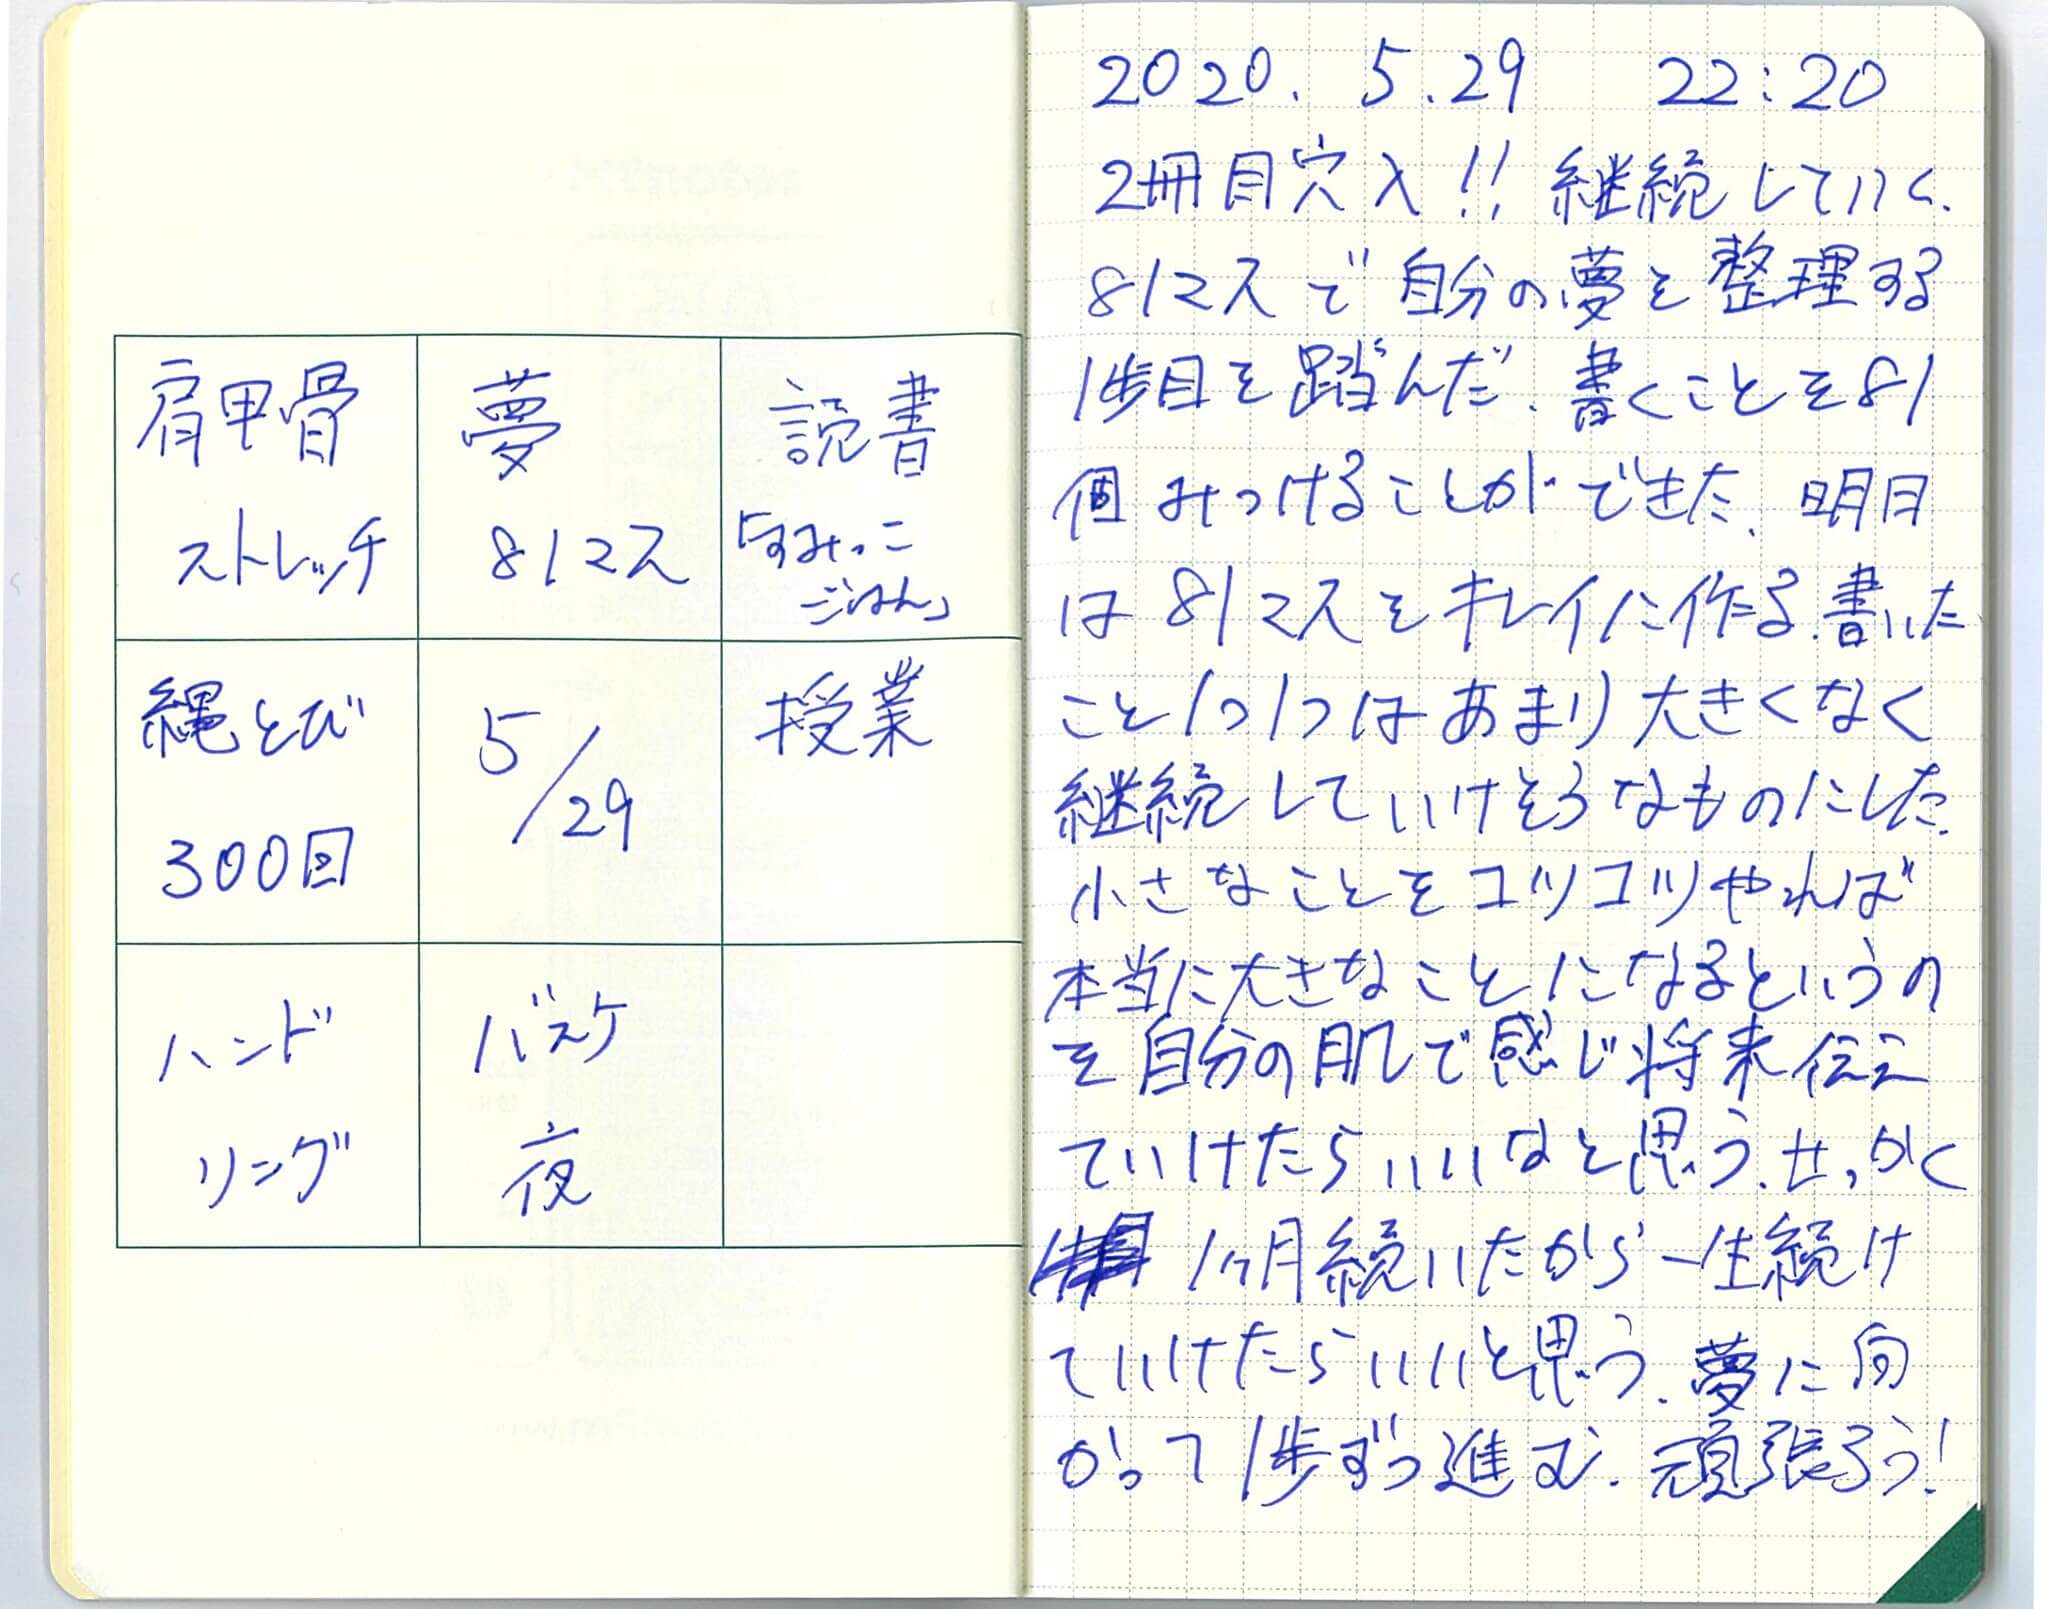 肩甲骨
ストレッチ
夢
81マス
読書
「すみっこ
ごはん」
縄とび
300回
5/29
授業
ハンド
リング
バスケ
夜
2020. 5.29 22:20
2冊目穴入!! 継続していく.
81マスで自分の夢を整理する
1歩目を踏んだ. 書くことを81
個みつけることができた. 明日
は81マスをキレイに作る. 書いた
こと1つ1つはあまり大きくなく
継続していけそうなものにした.
小さなことをコツコツやれば
本当に大きなことになるというの
を自分の肌で感じ将来伝え
ていけたらいいなと思う. せっかく
1ヶ月続いたから一生続け
ていけたらいいと思う. 夢に向
かって1歩ずつ進む. 頑張ろう!